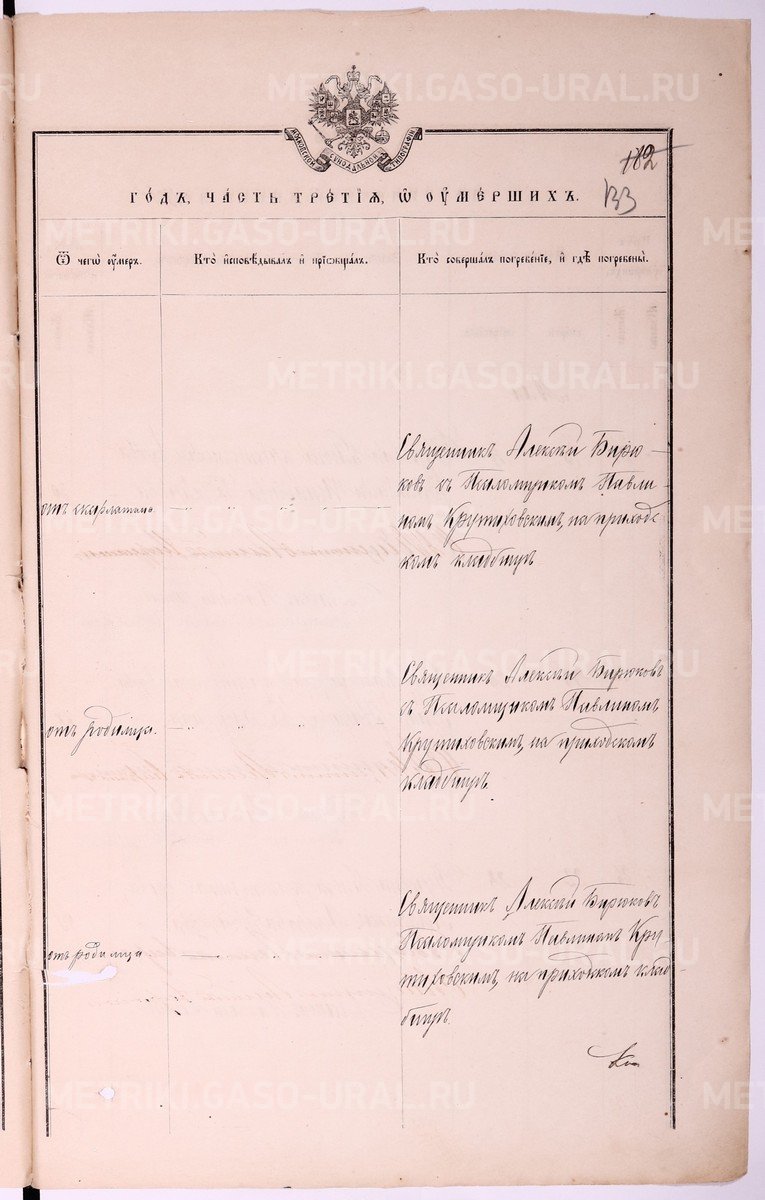 METRIKI.GASO-URAL.RU
МОСКОВСКОЙ СѴНОДАЛЬНОЙ ТИПОГРАФІИ
182
133
ГО́ДЪ, ЧА́СТЬ ТРЕ́ТІѦ, Ѡ҆ ОУ҆МЕ́РШИХЪ.
Ѿ чегѡ̀ оу҆́меръ.
Кто̀ и҆сповѣ́дывалъ и҆ прїѡбща́лъ.
Кто̀ соверша́лъ погребе́нїе, и҆ гдѣ̀ погребены̀.
отъ скарлатины
Священникъ Алексѣй Бирю-
ковъ съ Псаломщикомъ Павли-
номъ Крутиховскимъ, на приходс
комъ кладбищѣ
отъ родимца.
Священникъ Алексѣй Бирюковъ
съ Псаломщикомъ Павлиномъ
Крутиховскимъ, на приходскомъ
кладбищѣ.
отъ родимца
Священникъ Алексѣй Бирюковъ
Псаломщикомъ Павлиномъ Кру
тиховскимъ, на приходскомъ клад
бищѣ.